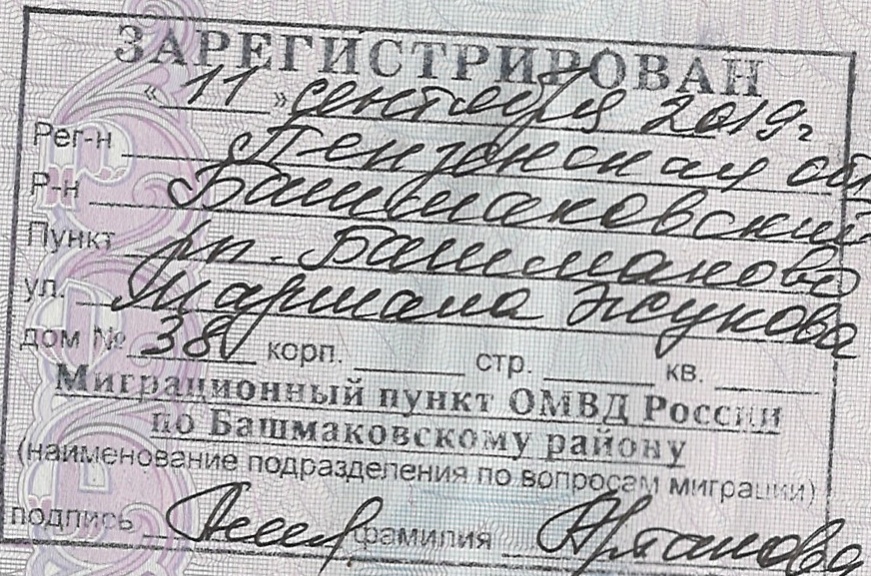 ЗАРЕГИСТРИРОВАН
«11» сентября 2019г
Рег-н Пензенская обл
Р-н Башмаковский
Пункт рп. Башмаково
ул. Маршала Жукова
дом № 38 корп. ____ стр. ____ кв. ____
Миграционный пункт ОМВД России
по Башмаковскому району
(наименование подразделения по вопросам миграции)
подпись фамилия